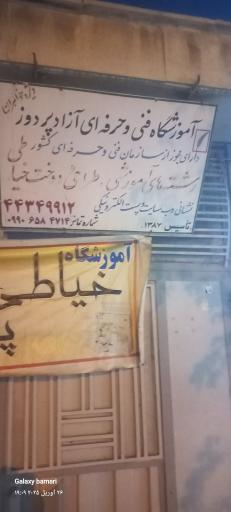 آموزشگاه فنی و حرفه ای آزاد پردوز
دارای مجوز از سازمان فنی و حرفه ای کشور
رشته های آموزشی طراحی دوخت
۴۴۳۴۹۹۱۲
نشانی وب سایت و پست الکترونیکی
۰۹۹۰ ۶۵۸ ۴۷۱۴
شماره تماس
تاسیس ۱۳۸۷
آموزشگاه
خیاطی
Galaxy bamari
۲۶ آوریل ۲۰۲۵ ۱۹:۰۹